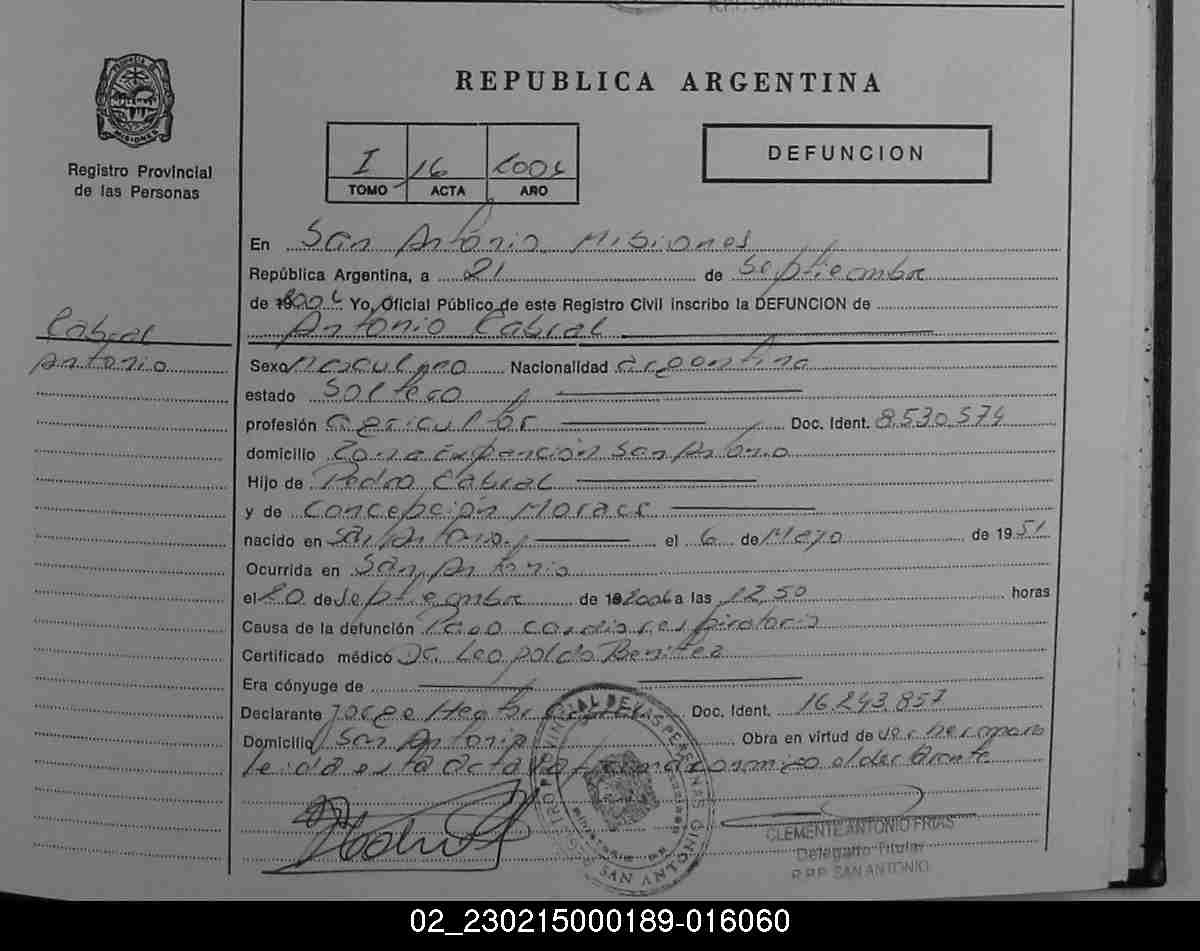 REPUBLICA ARGENTINA
PROVINCIA DE
MISIONES
Registro Provincial
de las Personas
I 16 2006
TOMO ACTA AÑO
DEFUNCION
En San Antonio Misiones
República Argentina, a 21 de Septiembre
de 2006 Yo, Oficial Público de este Registro Civil inscribo la DEFUNCION de
Antonio Cabral
Cabral
Antonio
Sexo masculino Nacionalidad argentina
estado Soltero
profesión agricultor Doc. Ident. 8.530.574
domicilio Zona Expención San Antonio
Hijo de Pedro Cabral
y de Concepción Moraes
nacido en San Antonio el 6 de Mayo de 1951
Ocurrida en San Antonio
el 20 de Septiembre de 2006 a las 12,50 horas
Causa de la defunción Paro cardiorespiratorio
Certificado médico Dr. Leopoldo Benitez
Era cónyuge de
Declarante Jorge Hector Doc. Ident. 16.243.857
Domicilio San Antonio Obra en virtud de ser hermano
Leida esta acta la firma conmigo el declarante
CLEMENTE ANTONIO FRIAS
Delegado Titular
R.P.P. SAN ANTONIO
02_230215000189-016060